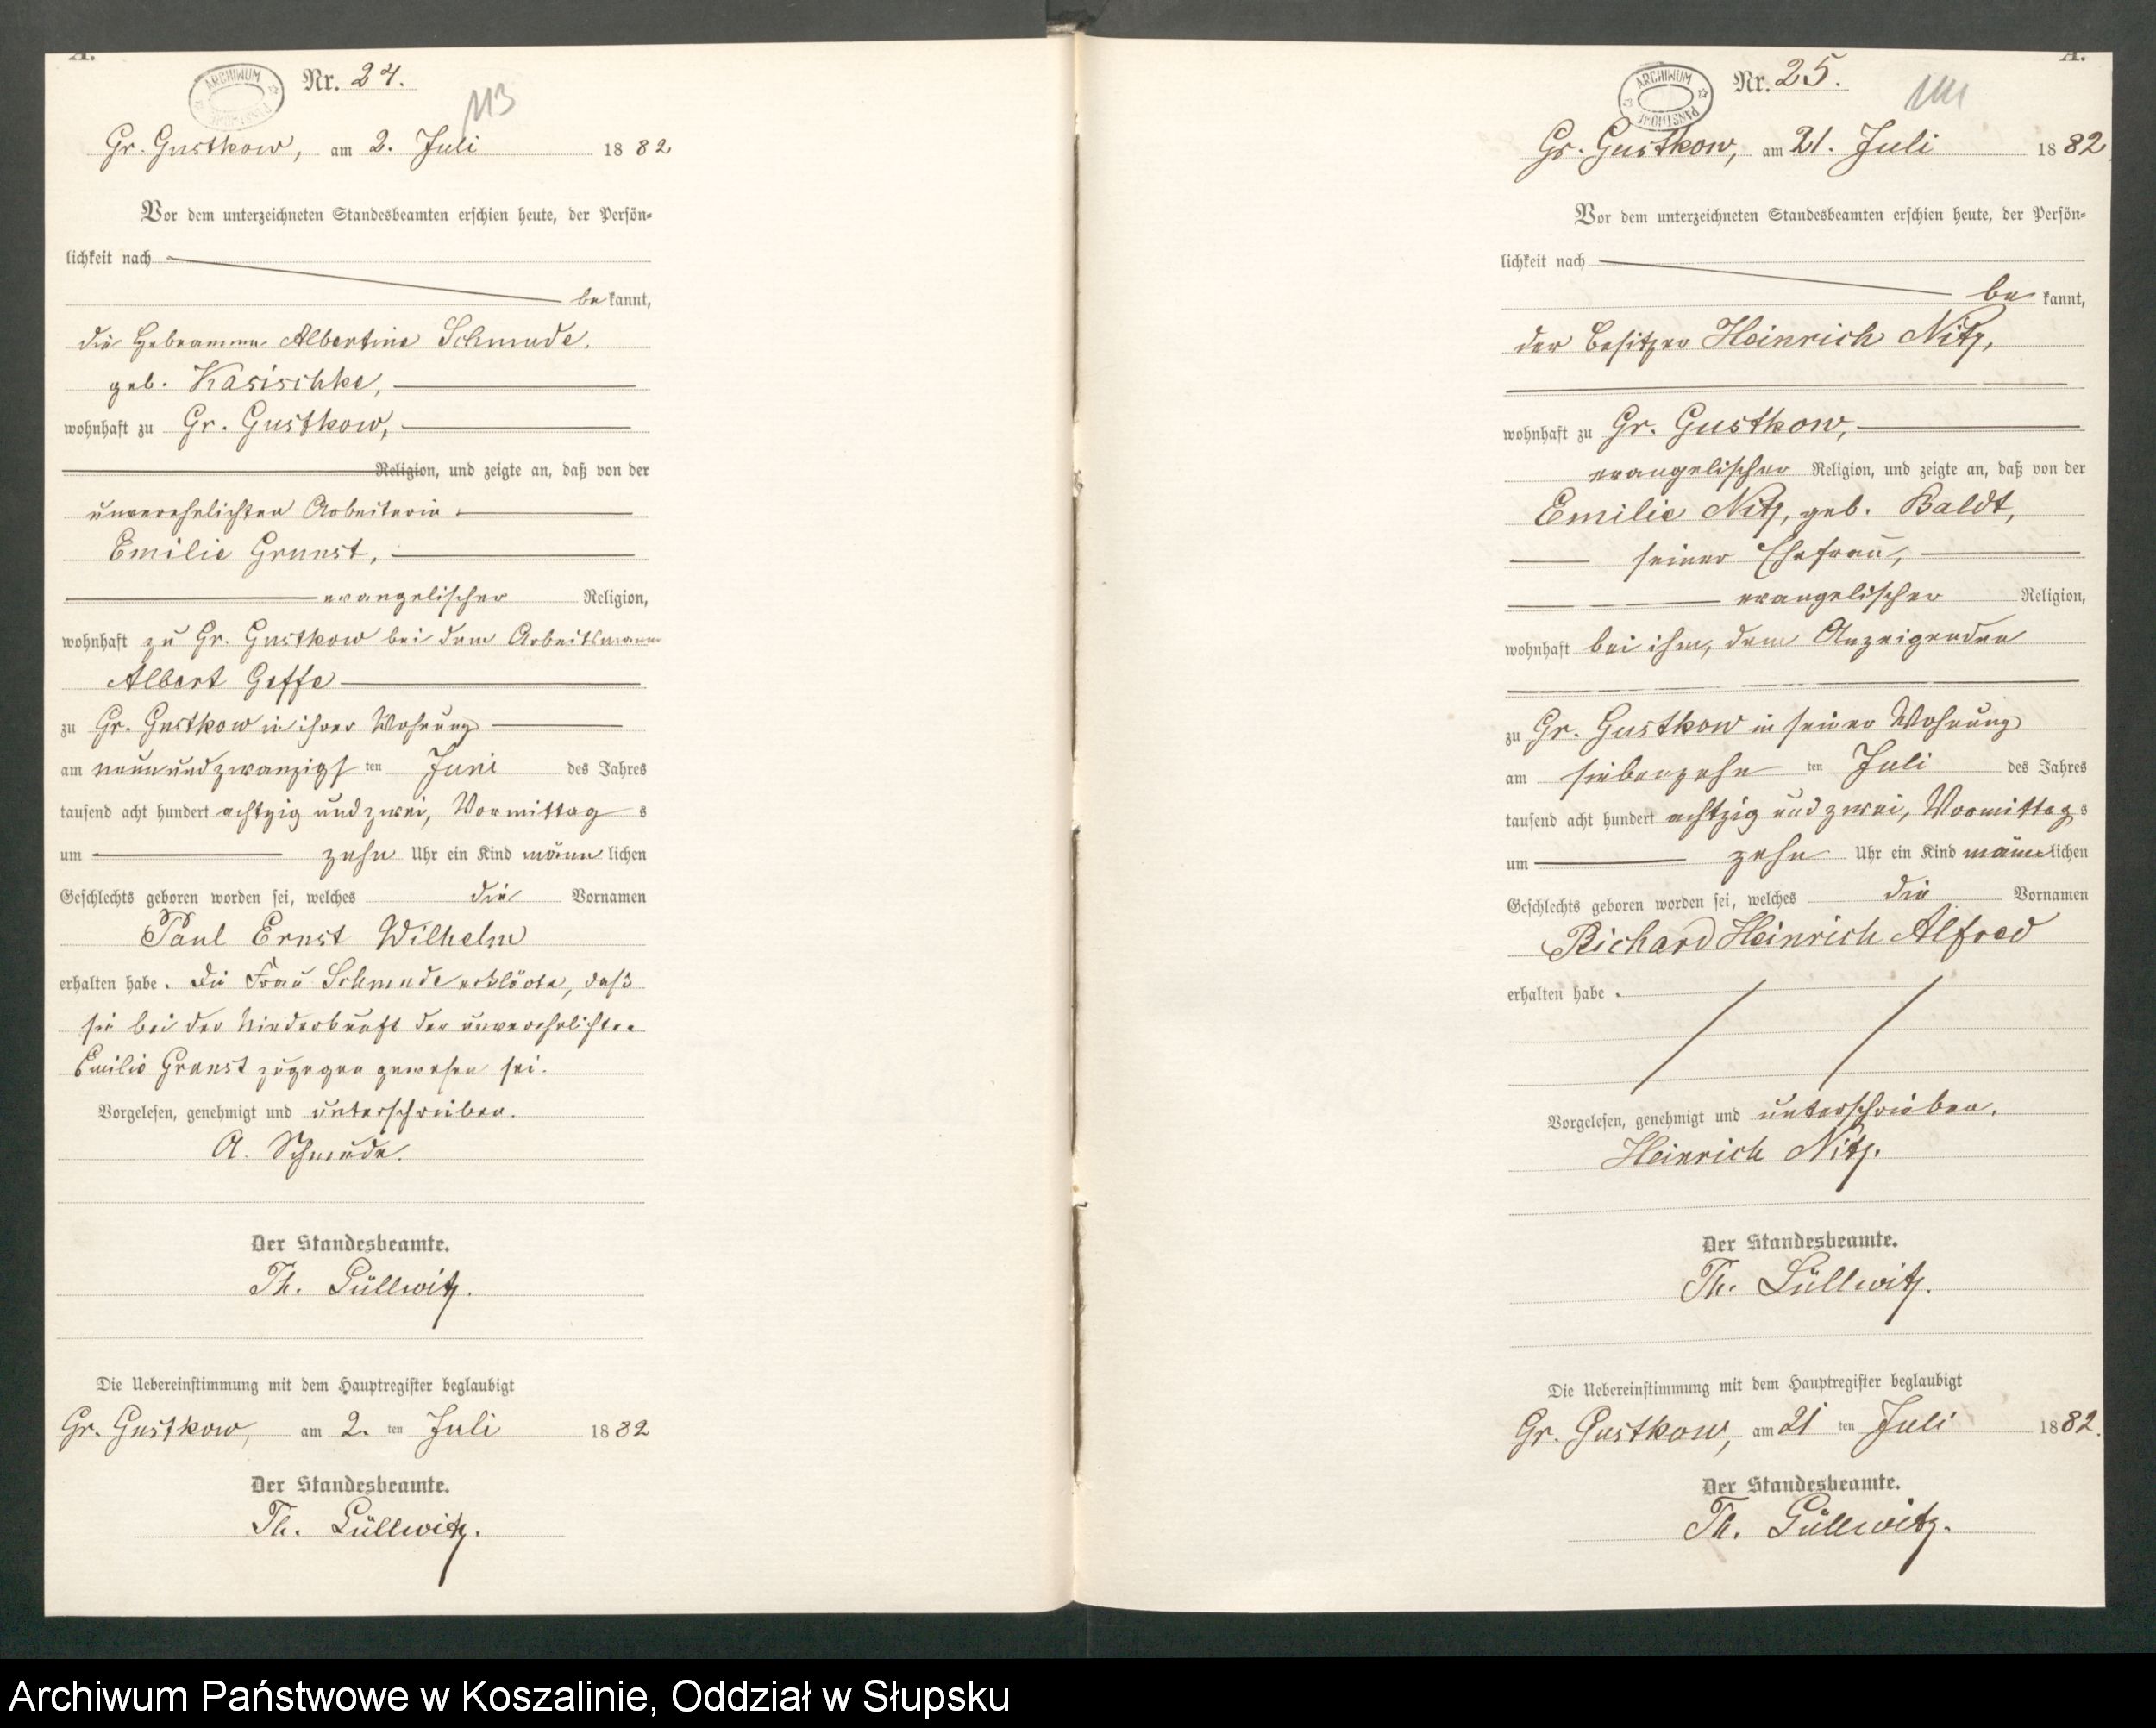 A.
ARCHIWUM PAŃSTWOWE
Nr. 24.
113
Gr. Gustkow, am 2. Juli 1882
Vor dem unterzeichneten Standesbeamten erschien heute, der Persön-
lichkeit nach
bekannt,
die Hebeamme Albertine Schmude,
geb. Kasischke,
wohnhaft zu Gr. Gustkow,
Religion, und zeigte an, daß von der
unverehelichten Arbeiterin
Emilie Granst,
evangelischer Religion,
wohnhaft zu Gr. Gustkow bei dem Arbeitsmann
Albert Geffe
zu Gr. Gustkow in ihrer Wohnung
am neunundzwanzigsten Juni des Jahres
tausend acht hundert achtzig und zwei, Vormittags
um zehn Uhr ein Kind männlichen
Geschlechts geboren worden sei, welches die Vornamen
Paul Ernst Wilhelm
erhalten habe. Die Frau Schmude erklärte, daß
sie bei der Niederkunft der unverehelichten
Emilie Granst zugegen gewesen sei.
Vorgelesen, genehmigt und unterschrieben.
A. Schmude.
Der Standesbeamte.
Th. Lüllwitz.
Die Uebereinstimmung mit dem Hauptregister beglaubigt
Gr. Gustkow, am 2. ten Juli 1882
Der Standesbeamte.
Th. Lüllwitz.
A.
ARCHIWUM PAŃSTWOWE
Nr. 25.
Gr. Gustkow, am 21. Juli 1882
Vor dem unterzeichneten Standesbeamten erschien heute, der Persön-
lichkeit nach
bekannt,
der Besitzer Heinrich Nitz,
wohnhaft zu Gr. Gustkow,
evangelischer Religion, und zeigte an, daß von der
Emilie Nitz, geb. Baldt,
seiner Ehefrau,
evangelischer Religion,
wohnhaft bei ihm, dem Anzeigenden
zu Gr. Gustkow in seiner Wohnung
am siebenzehnten Juli des Jahres
tausend acht hundert achtzig und zwei, Vormittags
um zehn Uhr ein Kind männlichen
Geschlechts geboren worden sei, welches die Vornamen
Richard Heinrich Alfred
erhalten habe.
Vorgelesen, genehmigt und unterschrieben.
Heinrich Nitz.
Der Standesbeamte.
Th. Lüllwitz.
Die Uebereinstimmung mit dem Hauptregister beglaubigt
Gr. Gustkow, am 21 ten Juli 1882.
Der Standesbeamte.
Th. Lüllwitz.
Archiwum Państwowe w Koszalinie, Oddział w Słupsku